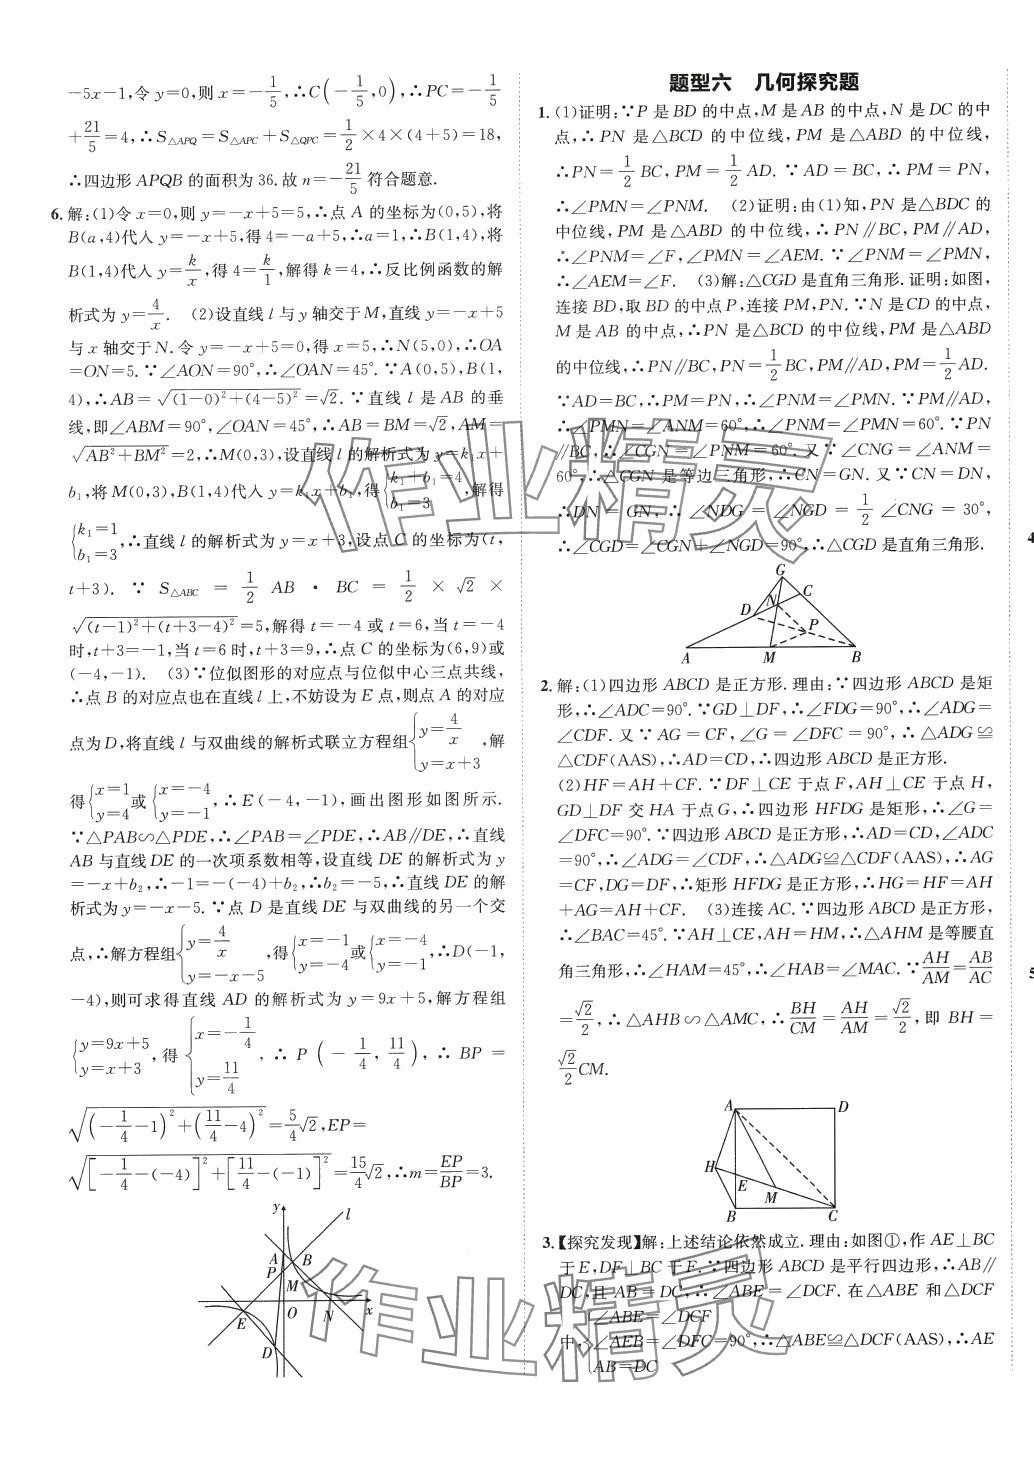 -5x-1,令 y=0,则 x=-1/5,∴C(-1/5,0),∴PC=-1/5
+21/5=4,∴S△APQ=S△APC+S△QPC=1/2×4×(4+5)=18,
∴四边形 APQB 的面积为 36.故 n=-21/5 符合题意.
6.解:(1)令 x=0,则 y=-x+5=5,∴点 A 的坐标为(0,5),将
B(a,4)代入 y=-x+5,得 4=-a+5,∴a=1,∴B(1,4),将
B(1,4)代入 y=k/x,得 4=k/1,解得 k=4,∴反比例函数的解
析式为 y=4/x. (2)设直线 l 与 y 轴交于 M,直线 y=-x+5
与 x 轴交于 N.令 y=-x+5=0,得 x=5,∴N(5,0),∴OA
=ON=5.∵∠AON=90°,∴∠OAN=45°.∵A(0,5),B(1,
4),∴AB=√((1-0)²+(4-5)²)=√2.∵直线 l 是 AB 的垂
线,即∠ABM=90°,∠OAN=45°,∴AB=BM=√2,AM=
√(AB²+BM²)=2,∴M(0,3),设直线 l 的解析式为 y=k₁x+
b₁,将 M(0,3),B(1,4)代入 y=k₁x+b₁,得{k₁+b₁=4 b₁=3,解得
{k₁=1 b₁=3,∴直线 l 的解析式为 y=x+3,设点 C 的坐标为(t,
t+3). ∵ S△ABC = 1/2 AB · BC = 1/2 × √2 ×
√((t-1)²+(t+3-4)²)=5,解得 t=-4 或 t=6,当 t=-4
时,t+3=-1,当 t=6 时,t+3=9,∴点 C 的坐标为(6,9)或
(-4,-1). (3)∵位似图形的对应点与位似中心三点共线,
∴点 B 的对应点也在直线 l 上,不妨设为 E 点,则点 A 的对应
点为 D,将直线 l 与双曲线的解析式联立方程组{y=4/x y=x+3,解
得{x=1 y=4或{x=-4 y=-1,∴E(-4,-1),画出图形如图所示.
∵△PAB∽△PDE,∴∠PAB=∠PDE,∴AB∥DE,∴直线
AB 与直线 DE 的一次项系数相等,设直线 DE 的解析式为 y
=-x+b₂,∴-1=-(-4)+b₂,∴b₂=-5,∴直线 DE 的解
析式为 y=-x-5.∵点 D 是直线 DE 与双曲线的另一个交
点,∴解方程组{y=4/x y=-x-5,得{x=-1 y=-4或{x=-4 y=-1,∴D(-1,
-4),则可求得直线 AD 的解析式为 y=9x+5,解方程组
{y=9x+5 y=x+3,得{x=-1/4 y=11/4,∴P(-1/4,11/4),∴BP=
√((-1/4-1)²+(11/4-4)²)=5/4√2,EP=
√([-1/4-(-4)]²+[11/4-(-1)]²)=15/4√2,∴m=EP/BP=3.
y
l
A
B
P
M
O
N
x
E
D
题型六 几何探究题
1.(1)证明:∵P 是 BD 的中点,M 是 AB 的中点,N 是 DC 的中
点,∴PN 是△BCD 的中位线,PM 是△ABD 的中位线,
∴PN=1/2BC,PM=1/2AD.∵AD=BC,∴PM=PN,
∴∠PMN=∠PNM. (2)证明:由(1)知,PN 是△BDC 的
中位线,PM 是△ABD 的中位线,∴PN∥BC,PM∥AD,
∴∠PNM=∠F,∠PMN=∠AEM.∵∠PNM=∠PMN,
∴∠AEM=∠F. (3)解:△CGD 是直角三角形.证明:如图,
连接 BD,取 BD 的中点 P,连接 PM,PN.∵N 是 CD 的中点,
M 是 AB 的中点,∴PN 是△BCD 的中位线,PM 是△ABD
的中位线,∴PN∥BC,PN=1/2BC,PM∥AD,PM=1/2AD.
∵AD=BC,∴PM=PN,∴∠PNM=∠PMN.∵PM∥AD,
∴∠PMN=∠ANM=60°,∴∠PNM=∠PMN=60°.∵PN
∥BC,∴∠CGN=∠PNM=60°.又∵∠CNG=∠ANM=
60°,∴△CGN 是等边三角形,∴CN=GN.又∵CN=DN,
∴DN=GN,∴∠NDG=∠NGD=1/2∠CNG=30°,
∴∠CGD=∠CGN+∠NGD=90°,∴△CGD 是直角三角形.
G
N
C
D
P
A
M
B
2.解:(1)四边形 ABCD 是正方形.理由:∵四边形 ABCD 是矩
形,∴∠ADC=90°.∵GD⊥DF,∴∠FDG=90°,∴∠ADG=
∠CDF.又∵AG=CF,∠G=∠DFC=90°,∴△ADG≌
△CDF(AAS),∴AD=CD,∴四边形 ABCD 是正方形.
(2)HF=AH+CF.∵DF⊥CE 于点 F,AH⊥CE 于点 H,
GD⊥DF 交 HA 于点 G,∴四边形 HFDG 是矩形,∴∠G=
∠DFC=90°.∵四边形 ABCD 是正方形,∴AD=CD,∠ADC
=90°,∴∠ADG=∠CDF,∴△ADG≌△CDF(AAS),∴AG
=CF,DG=DF,∴矩形 HFDG 是正方形,∴HG=HF=AH
+AG=AH+CF. (3)连接 AC.∵四边形 ABCD 是正方形,
∴∠BAC=45°.∵AH⊥CE,AH=HM,∴△AHM 是等腰直
角三角形,∴∠HAM=45°,∴∠HAB=∠MAC.∵AH/AM=AB/AC
=√2/2,∴△AHB∽△AMC,∴BH/CM=AH/AM=√2/2,即 BH=
√2/2CM.
A
D
H
E
M
B
C
3.【探究发现】解:上述结论依然成立.理由:如图①,作 AE⊥BC
于 E,DF⊥BC 于 F.∵四边形 ABCD 是平行四边形,∴AB∥
DC,且 AB=DC,∴∠ABE=∠DCF.在△ABE 和△DCF
中,{∠ABE=∠DCF ∠AEB=∠DFC=90°,∴△ABE≌△DCF(AAS),∴AE
AB=DC
4
5
作业精灵
作业精灵